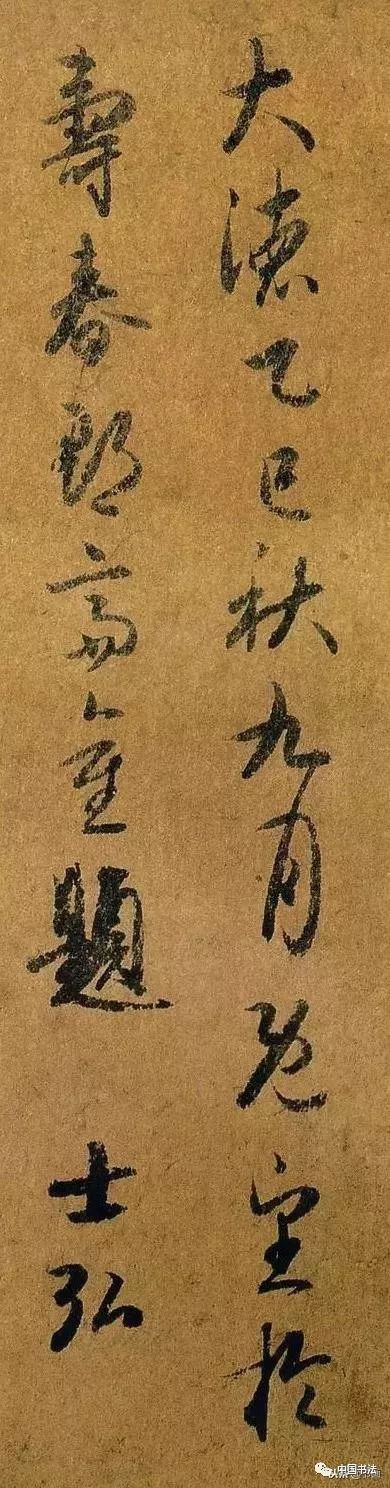 大德乙巳秋九月既望於
壽春郡齋重題 士弘
中国书法